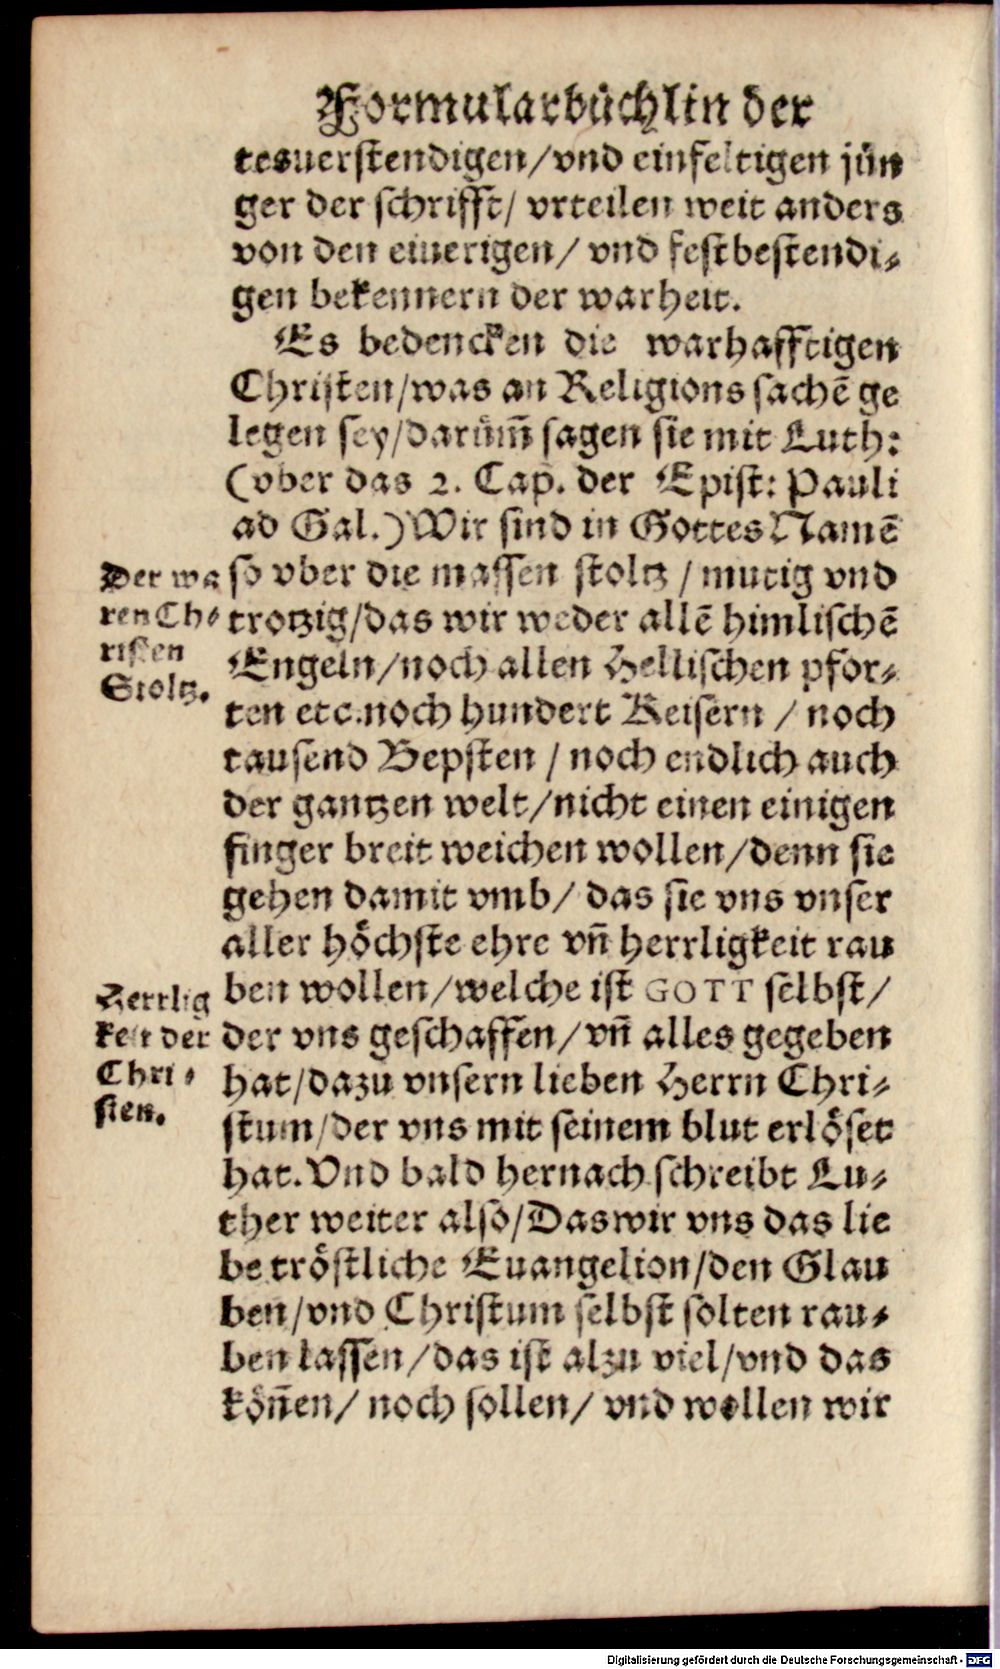 Formularbüchlin der
tesuerstendigen/vnd einfeltigen jün
ger der schrifft/ vrteilen weit anders
von den eiuerigen/ vnd festbestendi⸗
gen bekennern der warheit.
Es bedencken die warhafftigen
Christen/was an Religions sachē ge
legen sey/darüm̄ sagen sie mit Luth:
(vber das 2. Cap. der Epist: Pauli
ad Gal.) Wir sind in Gottes Namē
so vber die massen stoltz / mutig vnd
trotzig/das wir weder allē himlischē
Engeln/noch allen Hellischen pfor⸗
ten etc.noch hundert Keisern / noch
tausend Bepsten / noch endlich auch
der gantzen welt/nicht einen einigen
finger breit weichen wollen/denn sie
gehen damit vmb/ das sie vns vnser
aller höchste ehre vn̄ herrligkeit rau
ben wollen/welche ist GOTT selbst/
der vns geschaffen/ vn̄ alles gegeben
hat/dazu vnsern lieben Herrn Chri⸗
stum/der vns mit seinem blut erlöset
hat. Vnd bald hernach schreibt Lu⸗
ther weiter also/Das wir vns das lie
be tröstliche Euangelion/den Glau
ben/vnd Christum selbst solten rau⸗
ben lassen/das ist alzu viel/vnd das
kön̄en/ noch sollen/ vnd wollen wir
Der wa
ren Ch⸗
risten
Stoltz.
Herrlig
keit der
Chri⸗
sten.
Digitalisierung gefördert durch die Deutsche Forschungsgemeinschaft - DFG